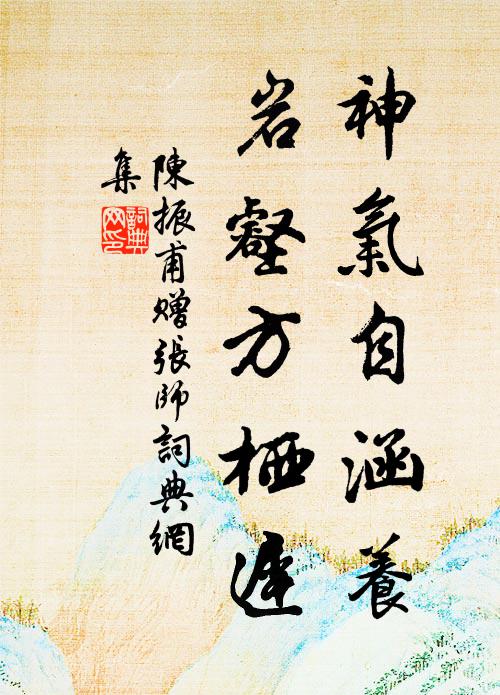 神氣自涵養
岩壑方栖遲
陳振甫贈張師詞典網
集
詞典
网印